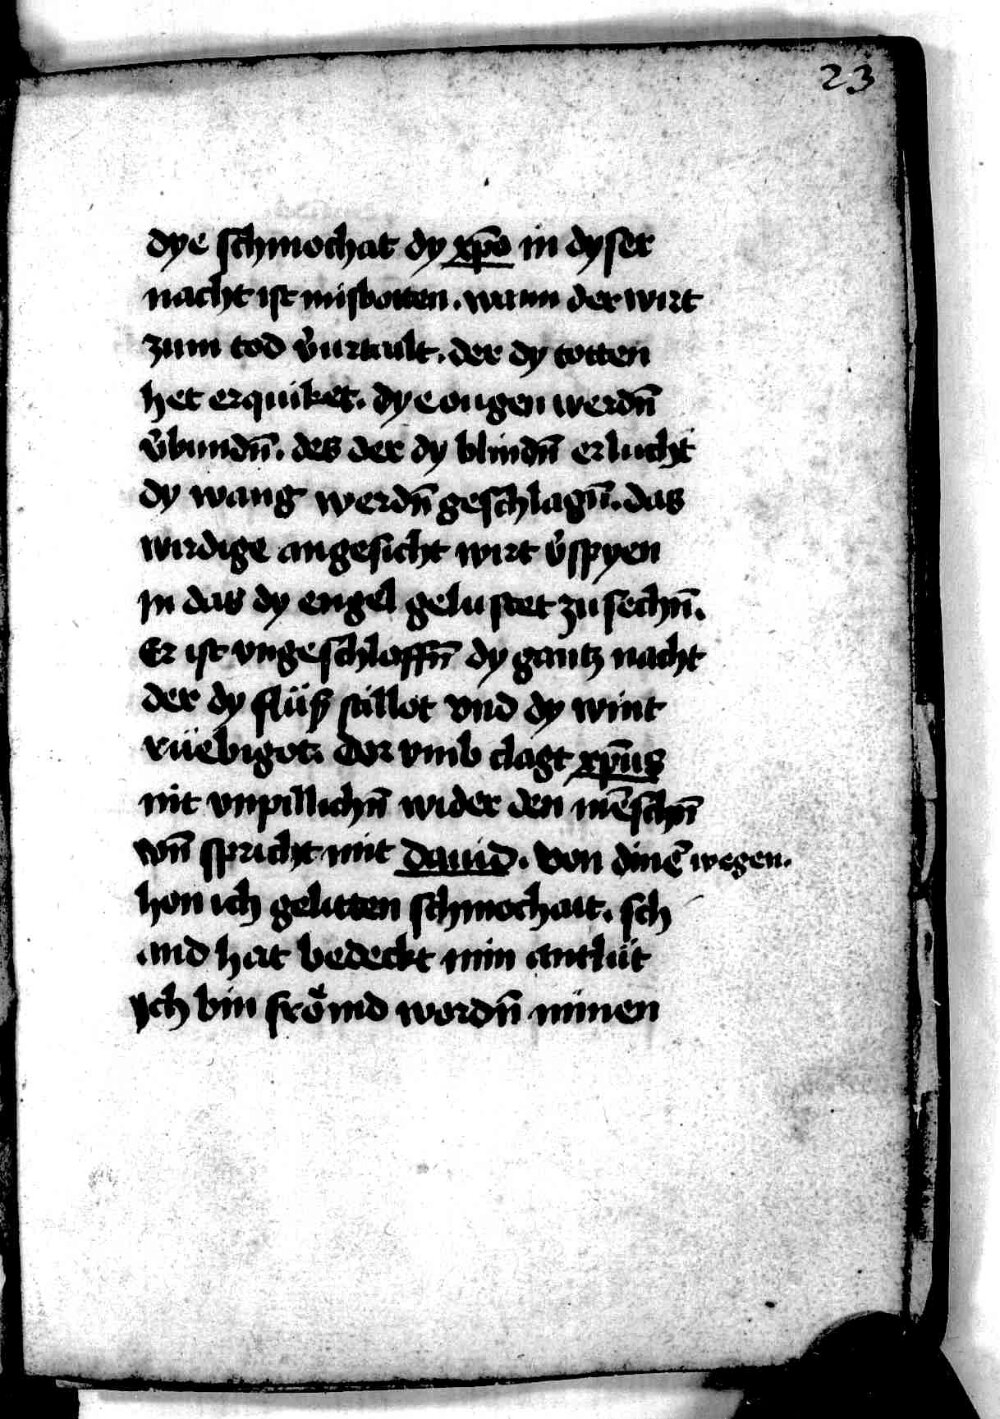 23
dye schmochat dy xp̄o in dyser
nacht ist misbotten. wann der wirt
zum tod v̉urtailt. der dy totten
het erquiket. dye ougen werdn̄
v̉bundn̄. des der dy blindn̄ erlucht
dy wang werdn̄ geschlagn̄. das
wirdige angesicht wirt v̉spyen
in das dy engel gelustet zu sechn̄.
Er ist vngeschloffn̄ dy gantz nacht
der dy flüß stillot vnd dy wint
rüebigot. dor vmb clagt xp̄us
nit vnpillichn̄ wider den mēschn̄
vn̄ spricht mit dauid. von dinē wegen.
hon ich gelitten schmochait. sch
and hat bedeckt min antlüt
Ich bin frömd wordn̄ minen